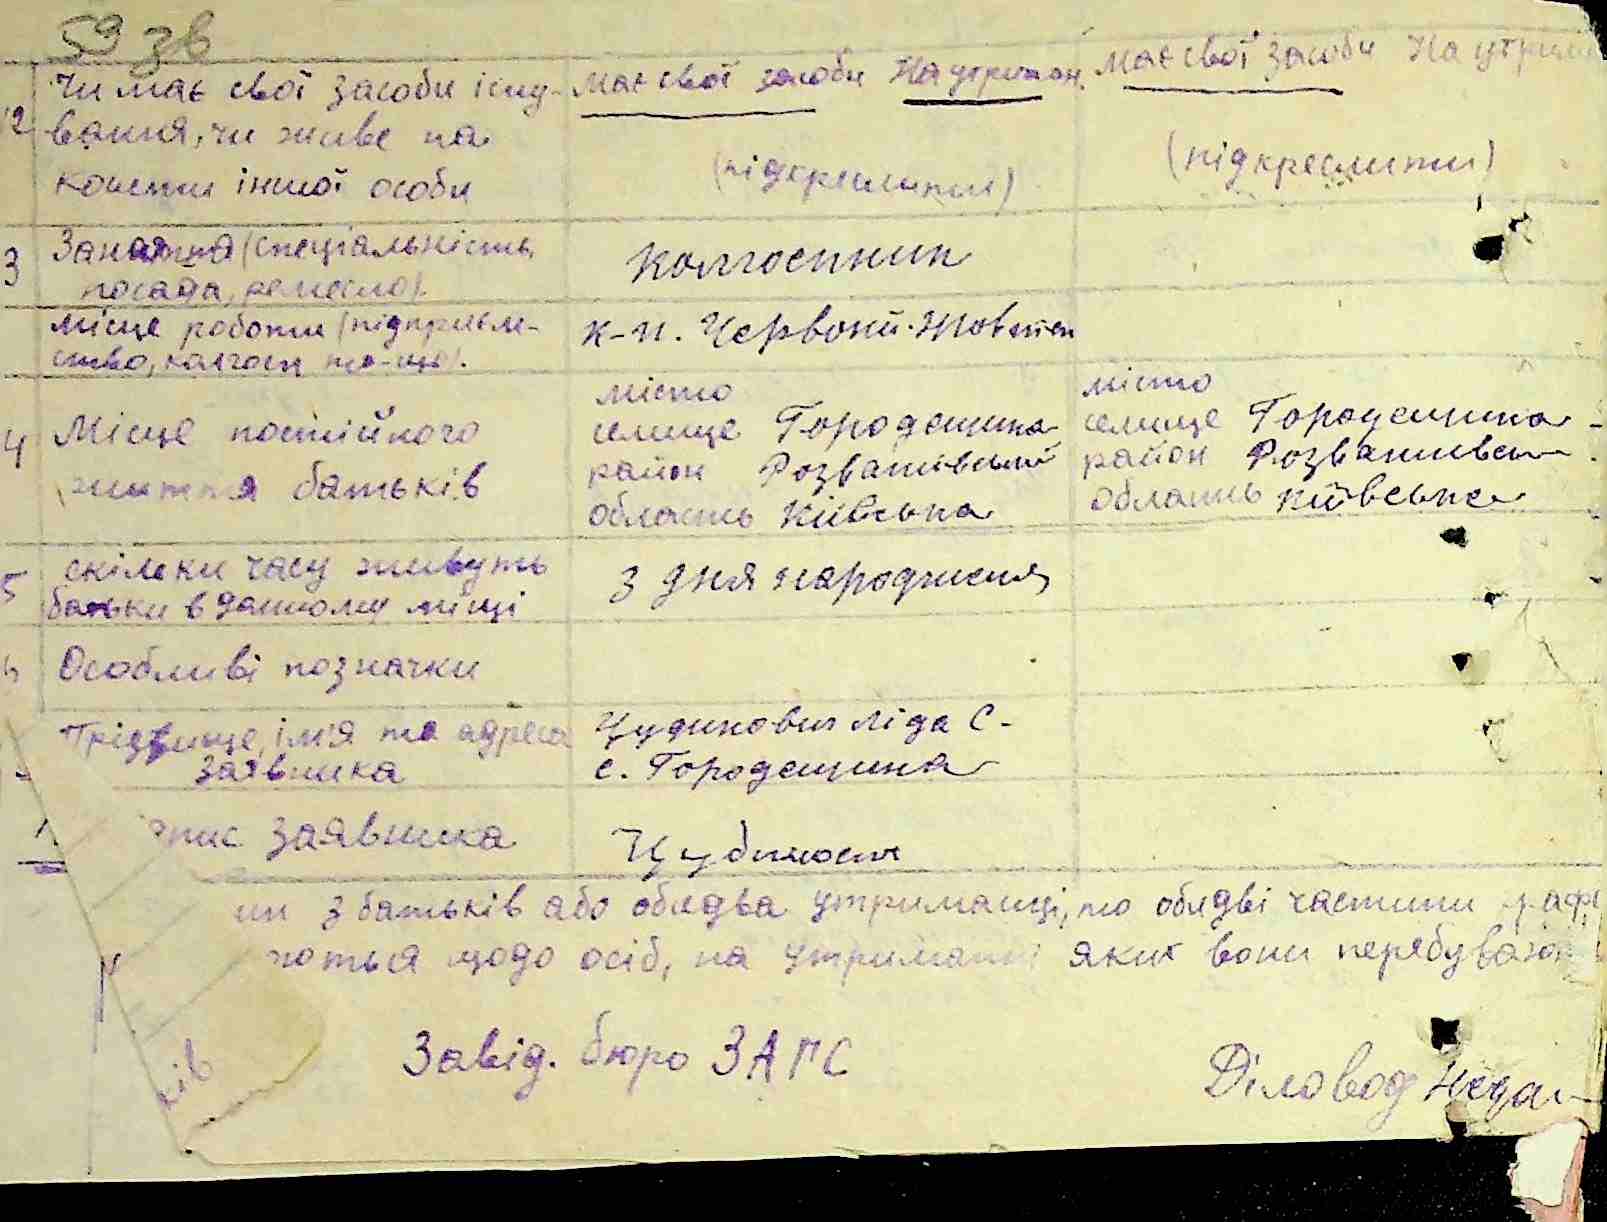 59 зв
12 Чи має свої засоби існу- Має свої засоби На утриман. Має свої засоби На утрим
вання, чи живе на
кошти іншої особи (підкреслити) (підкреслити)
3 Заняття (спеціальність, колгоспник
посада, ремесло).
Місце роботи (підприєм- к-п. Червоний Жовтень
ство, колгосп то-що).
місто місто
4 Місце постійного селище Городещина селище Городещина
життя батьків район Розважівський район Розважівськ
область Київська область Київська
5 скільки часу живуть з дня народження
батьки в данному місці
6 Особливі позначки
Прізвище, ім'я та адреса Ліда С-
заявника с. Городещина
пис заявника
ин з батьків або обидва утриманці, то обидві частини граф
ються щодо осіб, на утриманні яких вони перебувают
Завід. бюро ЗАГС
Діловод
ків